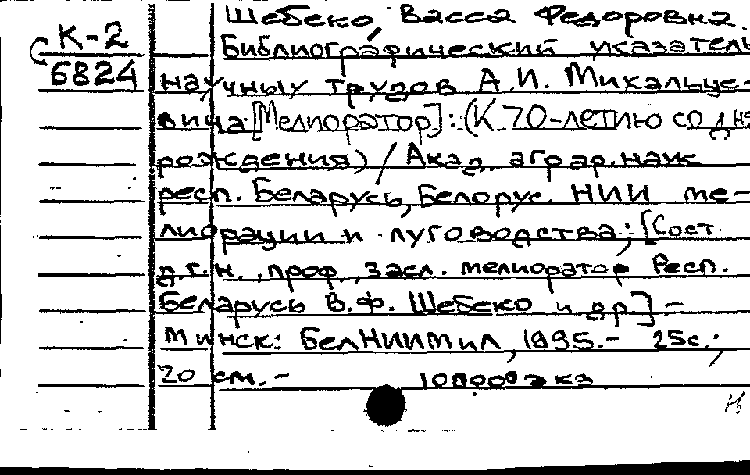 К-2
6824
Шебеко, Васса Федоровна.
Библиографический указатель
научных трудов А.И. Михальце-
вича [Мелиоратор]: (К 70-летию со дня
рождения) / Акад. аграр. наук
респ. Беларусь, Белорус. НИИ ме-
лиорации и луговодства; [Сост.
д.т.н., проф., засл. мелиоратор Респ.
Беларусь В.Ф. Шебеко и др.] -
Минск: БелНИИМиЛ, 1995.- 25с.;
20 см. -
экз